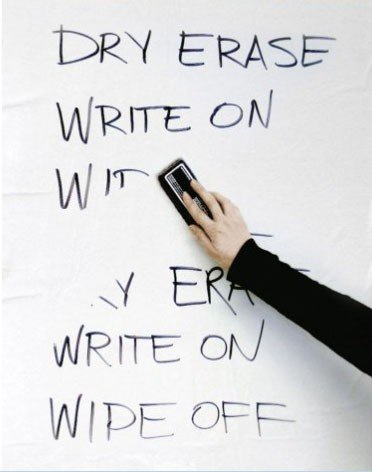 DRY ERASE
WRITE ON
WRITE ON
WIPE OFF